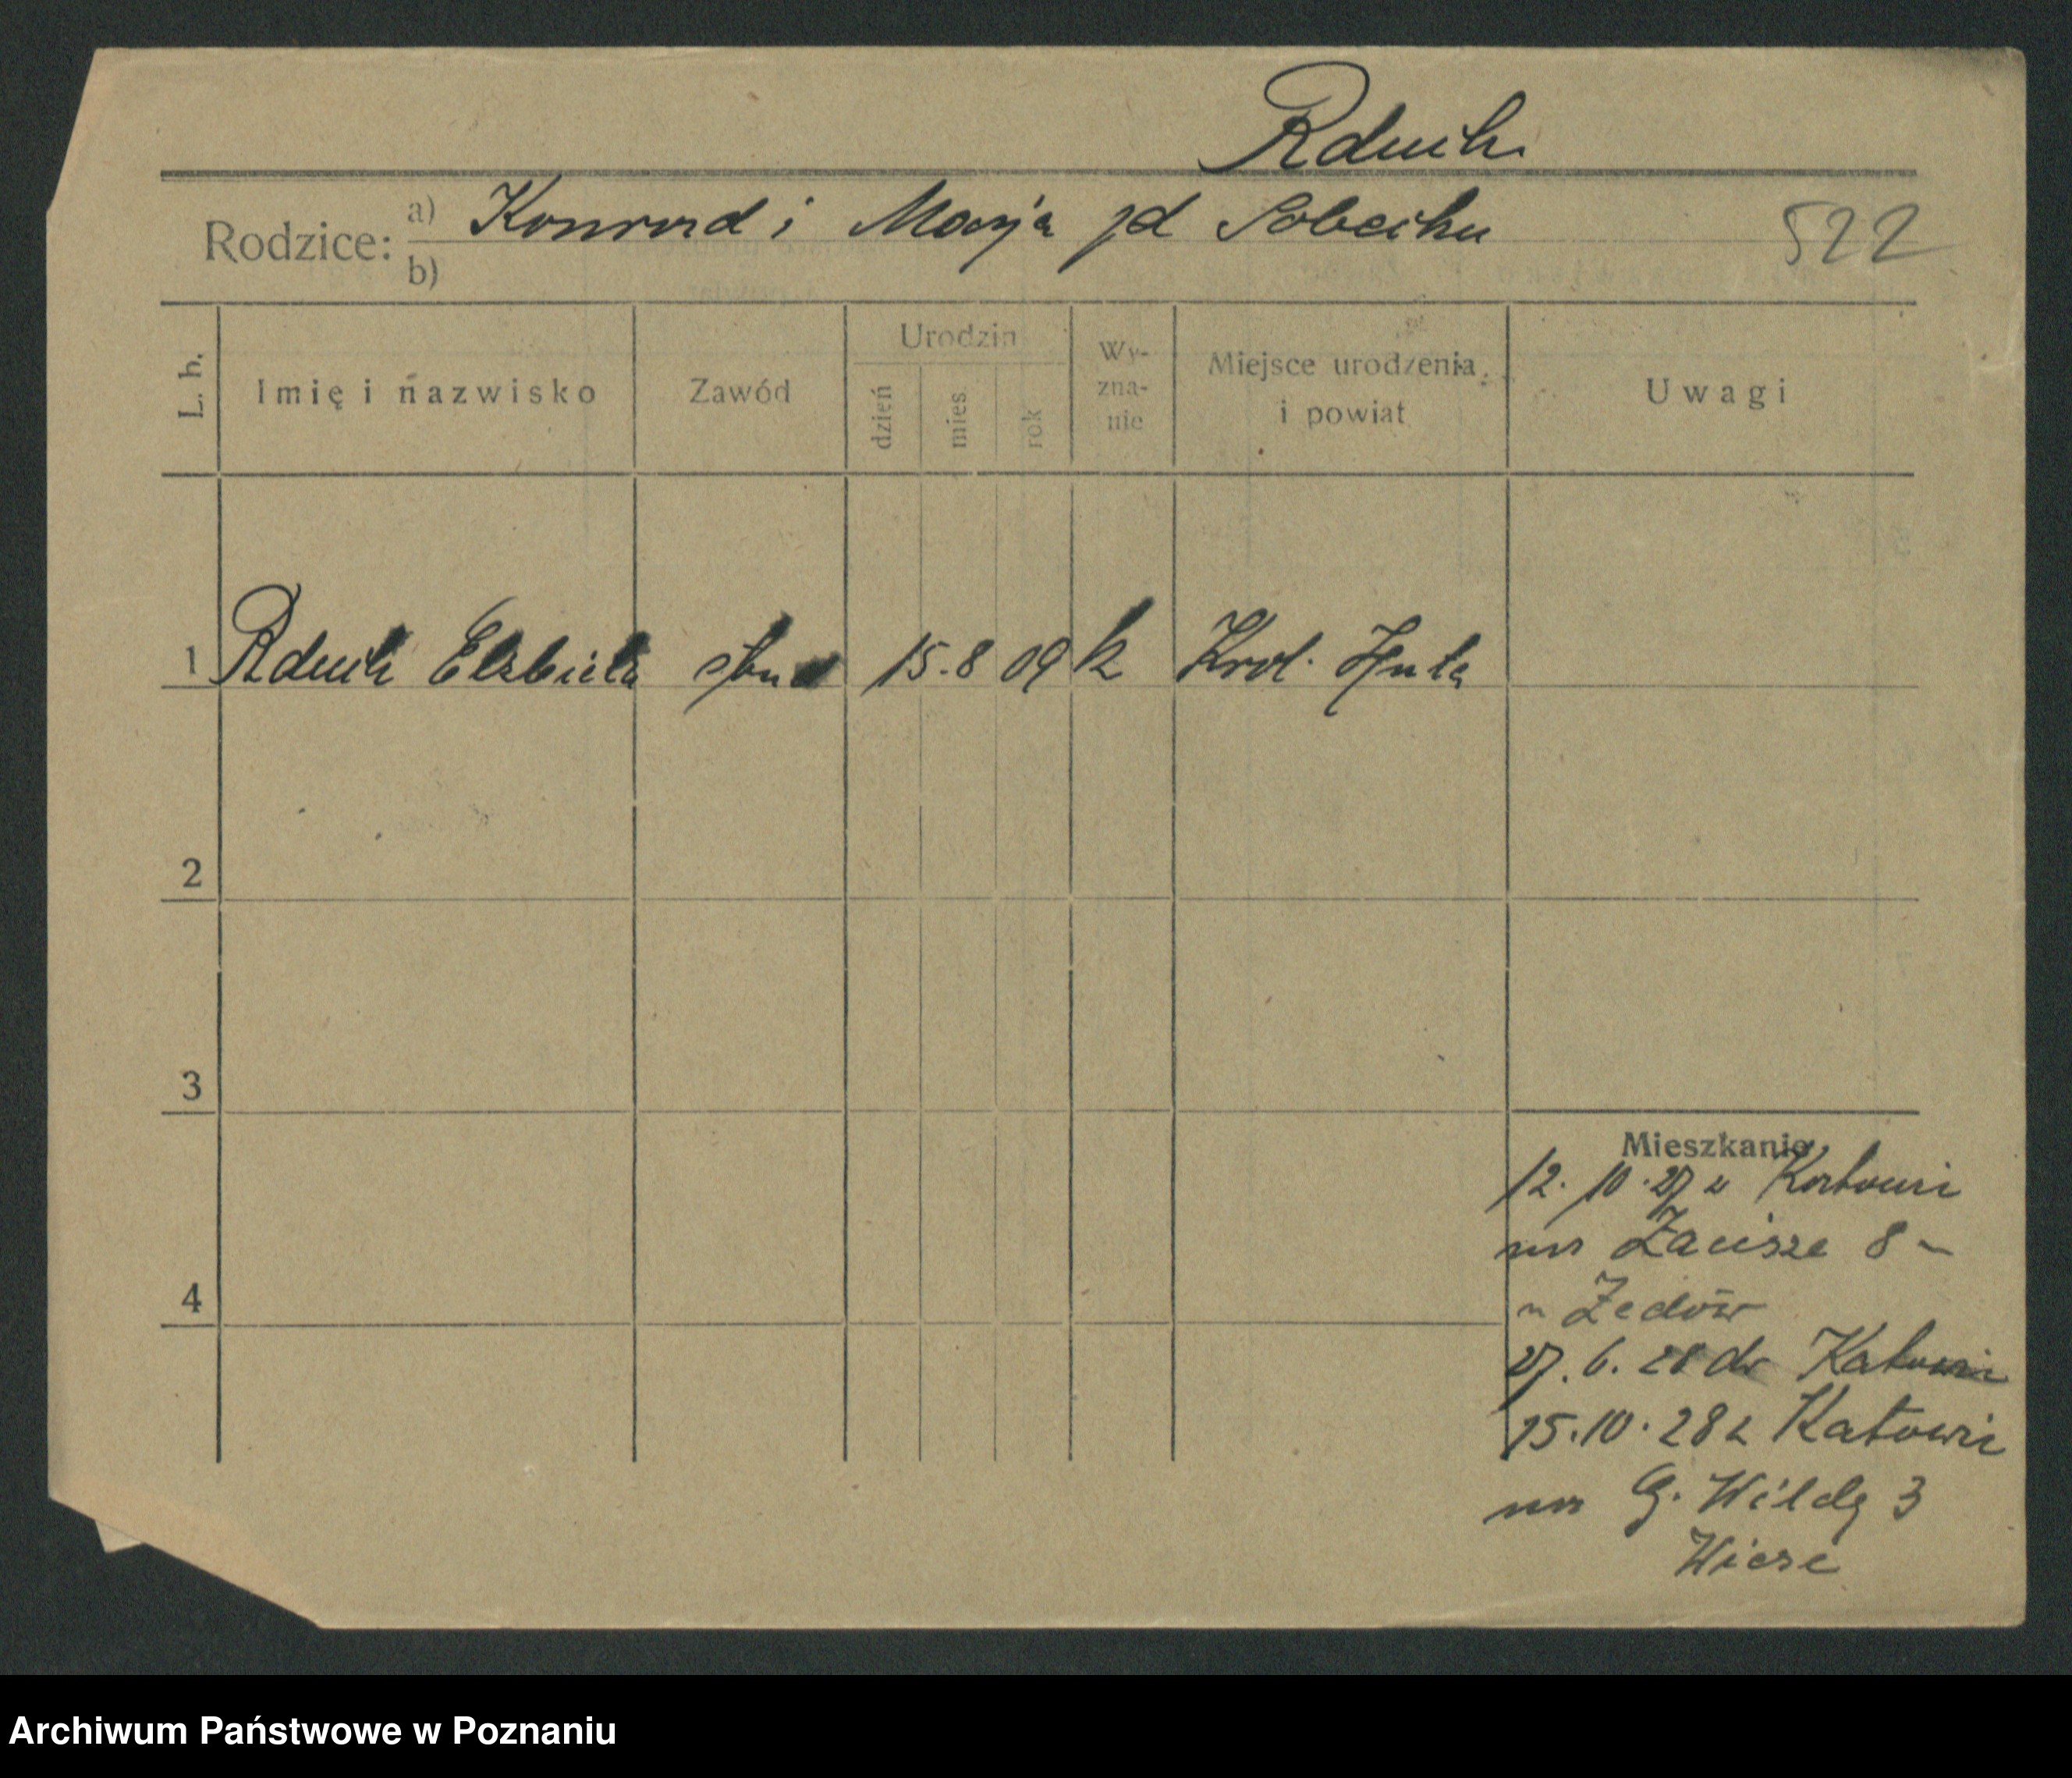 Rduch
Rodzice: a) Konrad i Marja zd Sobczik
b)
522
L. b.
Imię i nazwisko
Zawód
Urodzin
dzień
mies.
rok
Wy-
zna-
nie
Miejsce urodzenia
i powiat
Uwagi
1 Rduch Elzbieta stud 15.8 09 k Krol. Huta
2
3
4
Mieszkanie
12. 10. 27 z Katowic
na Zacisze 8
27. 6. 28 do Katowic
15. 10. 28 z Katowic
na G. Wildę 3
Wiese
Archiwum Państwowe w Poznaniu